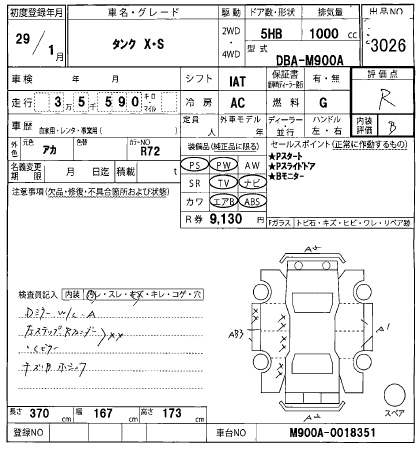 初度登録年月 車名・グレード 駆動 ドア数・形状 排気量 出品NO
29 / 1月 タンク X・S 2WD ・ 4WD 5HB 1000 cc 3026
型式 DBA-M900A
車検 年 月 シフト IAT 保証書 有・無 評価点 R
走行 3万5千590 キロ・マイル 冷房 AC 燃料 G
車歴 自家用・レンタ・事業用( ) 定員 人 外車モデル 年 ディーラー・並行 ハンドル 左・右 内装評価 B
外色 元色 アカ 色替 カラーNO R72 装備品(純正品に限る) セールスポイント(正常に作動するもの)
名義変更期限 月 日迄 積載 t PS PW AW ★Pスタート
注意事項(欠品・修復・不具合箇所および状態) SR TV ナビ ★Pスライドドア
カワ エアB ABS ★Bモニター
R券 9,130 円 Fガラス トビ石・キズ・ヒビ・ワレ・リペア跡
検査員記入 内装 ヨゴレ・スレ・キズ・キレ・コゲ・穴
A2
XX
AB3
A1
A2
スペア
長さ 370 cm 幅 167 cm 高さ 173 cm
登録NO 車台NO M900A-0018351